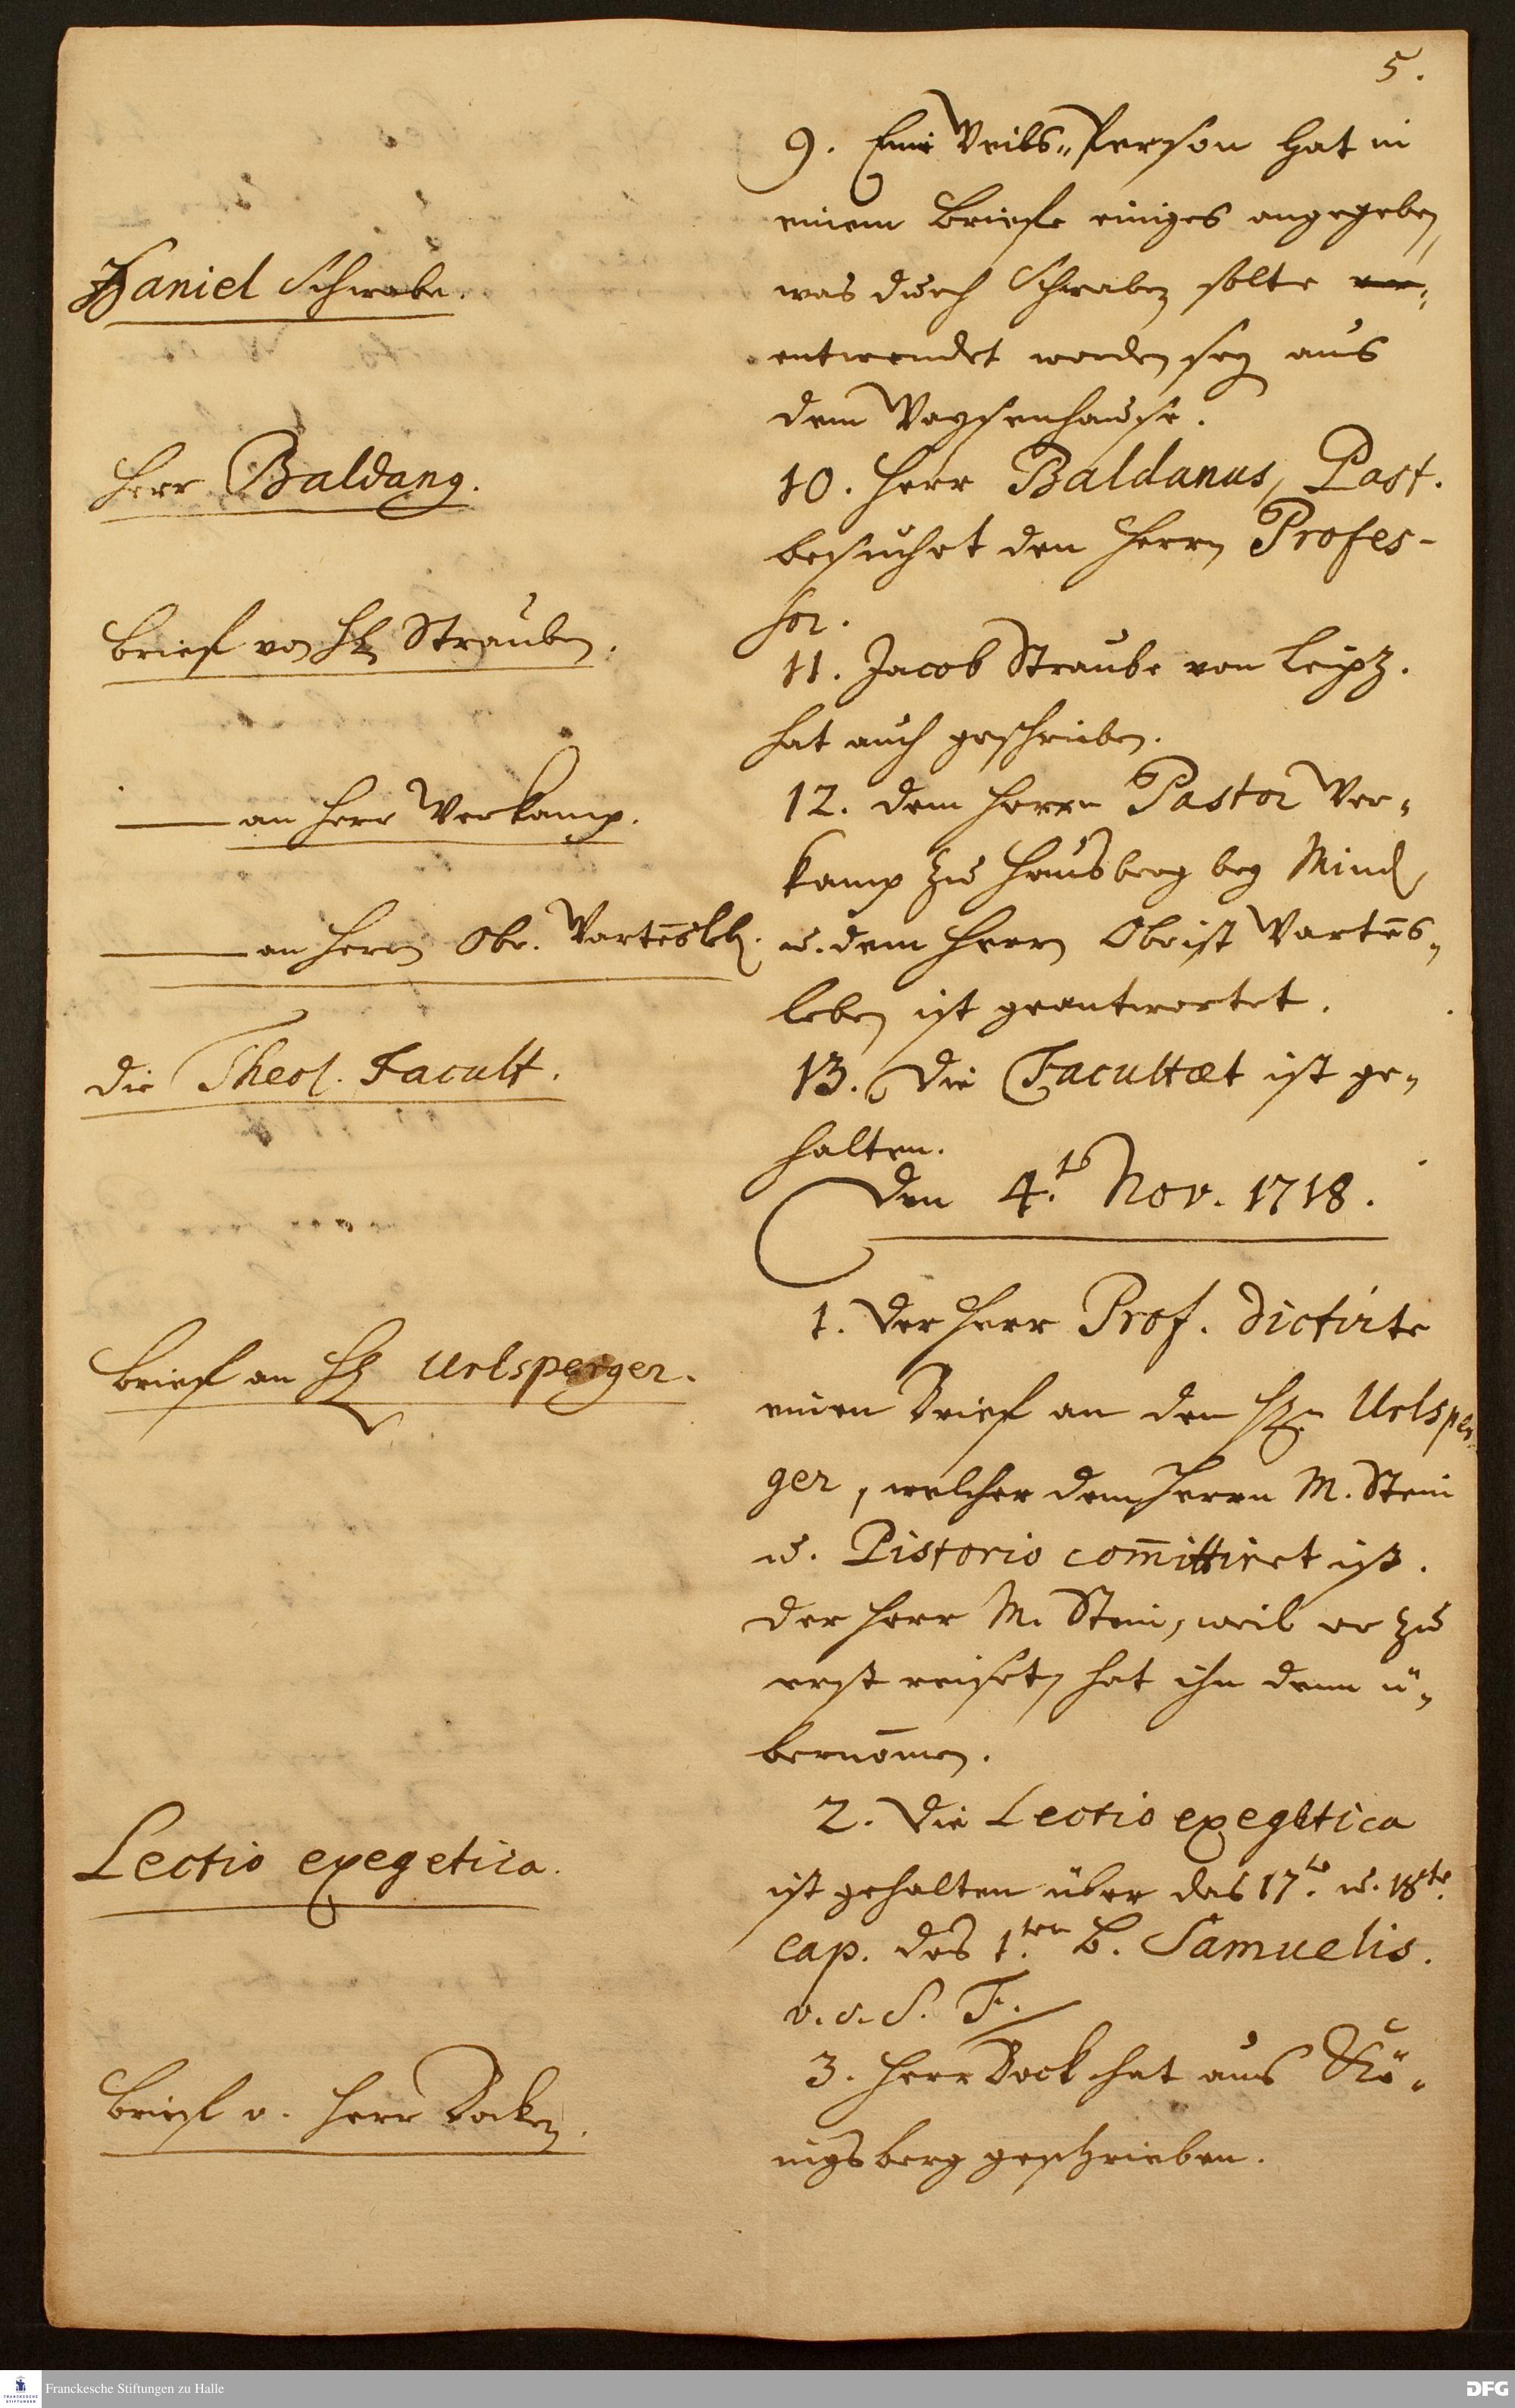 5.
9. Eine Weibs-Person hat in
einem Briefe einiges angegeben,
Daniel Schwabe.
was durch Schwaben solte
entwendet worden sey aus
dem Waysenhause.
Herr Baldang.
10. Herr Baldanus, Past.
besuchet den Herrn Profes-
sor.
Brief von H. Strauben.
11. Jacob Straube von Leipz.
hat auch geschrieben.
—— an Herr Verkamp.
12. dem Herrn Pastor Ver-
kamp zu Hausberg bey Mind,
—— an Herrn Obr. Wartēsleb.
u. dem Herrn Obrist Wartēs-
leben ist geantwortet.
die Theol. Facult.
13. Die Facultæt ist ge-
halten.
Den 4.t Nov. 1718.
1. Der Herr Prof. dictirte
Brief an H. Urlsperger.
einen Brief an den H. Urlsper-
ger, welcher dem Herrn M. Stein
u. Pistorio com̄ittiret ist.
Der Herr M. Stein, weil er zu
erst reiset, hat ihn denn ü-
bernom̄en.
2. Die Lectio exegetica
Lectio exegetica.
ist gehalten über das 17.te u. 18te.
cap. des 1.ten B. Samuelis.
v. s. S. T.
3. Herr Bock hat aus Kö-
Brief v. Herr Bocken.
nigsberg geschrieben.
Franckesche Stiftungen zu Halle
DFG